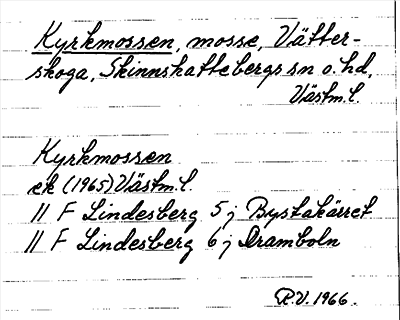 Kyrkmossen, mosse, Vätter-
skoga, Skinnskattebergs sn o. hd,
Västm.l.
Kyrkmossen
ek (1965) Västm.l.
// F Lindesberg 5 j Bystakärret
// F Lindesberg 6 j Dramboln
R.V. 1966.